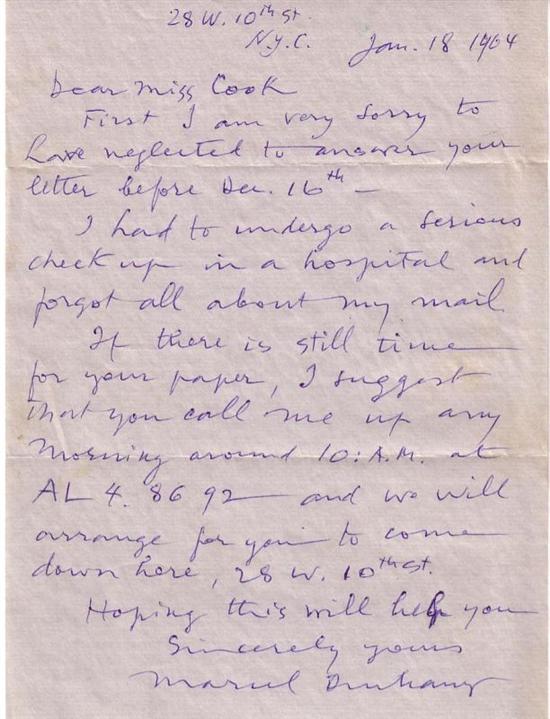 28 W. 10th St.
N.Y.C. Jan. 18 1964
Dear Miss Cook
First I am very sorry to
have neglected to answer your
letter before Dec. 16th –
I had to undergo a serious
check up in a hospital and
forgot all about my mail
If there is still time
for your paper, I suggest
that you call me up any
morning around 10: A.M. at
AL 4. 86 92 – and we will
arrange for you to come
down here, 28 W. 10th St.
Hoping this will help you
Sincerely yours
Marcel Duchamp